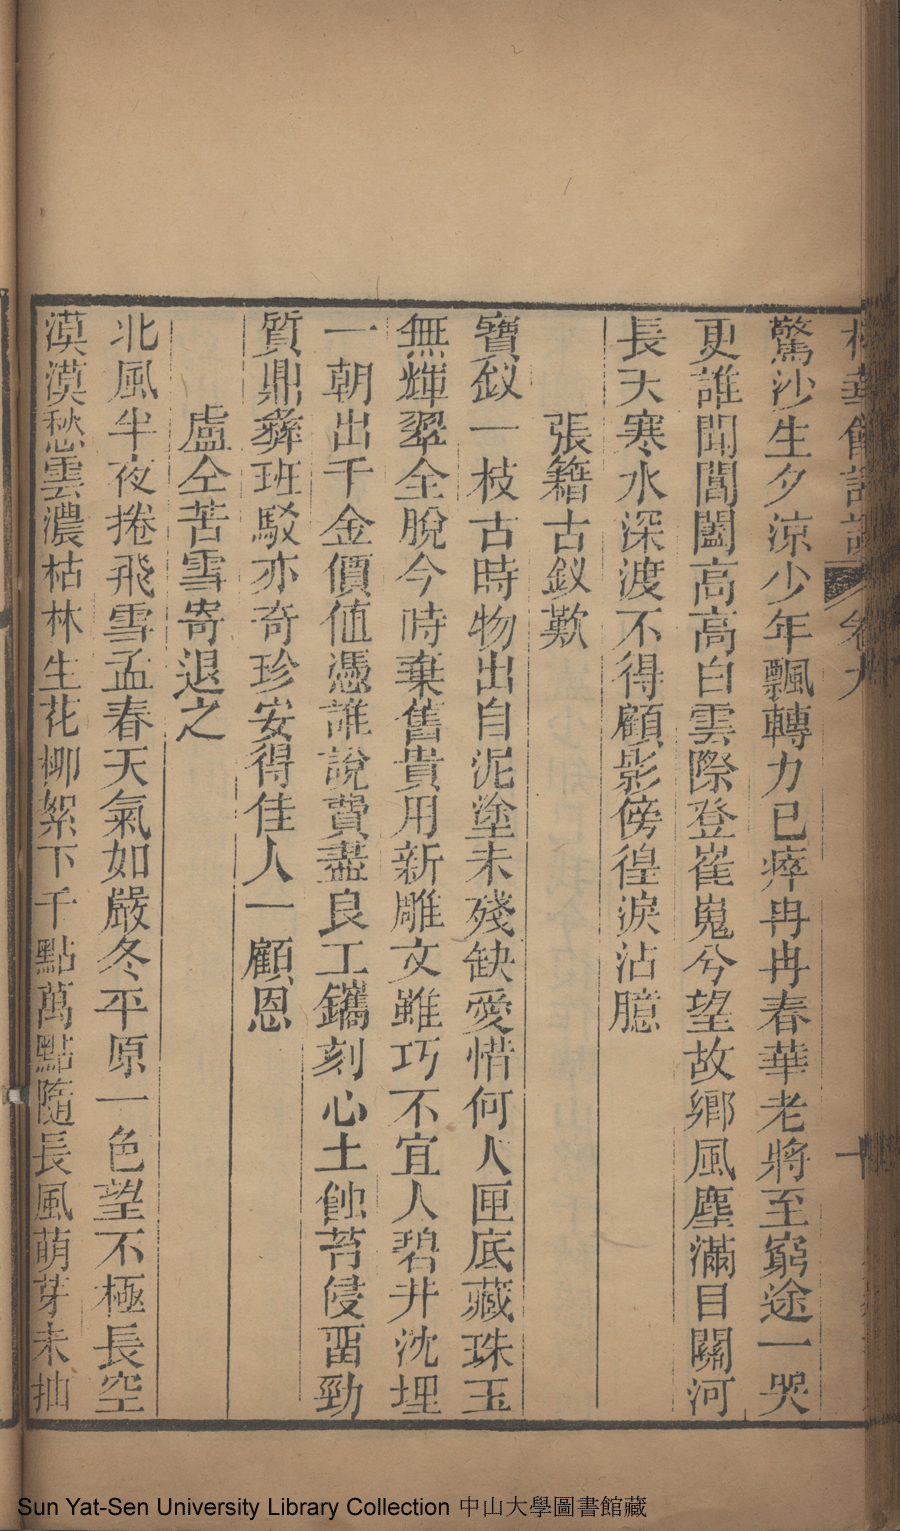 驚沙生夕涼少年飄轉力已瘁冉冉春華老將至窮途一哭
更誰聞閶闔高高白雲際登崔嵬兮望故鄉風塵滿目關河
長天寒水深渡不得顧影傍徨淚沾臆
張籍古釵歎
寶釵一枝古時物出自泥塗未殘缺愛惜何人匣底藏珠玉
無輝翠全脫今時棄舊貴用新雕文雖巧不宜人碧井沈埋
一朝出千金價值憑誰說費盡良工鐫刻心土蝕苔侵畱勁
質鼎彝班駁亦奇珍安得佳人一顧恩
盧仝苦雪寄退之
北風半夜捲飛雪孟春天氣如嚴冬平原一色望不極長空
漠漠愁雲濃枯林生花柳絮下千點萬點隨長風萌芽未抽
Sun Yat-Sen University Library Collection 中山大學圖書館藏